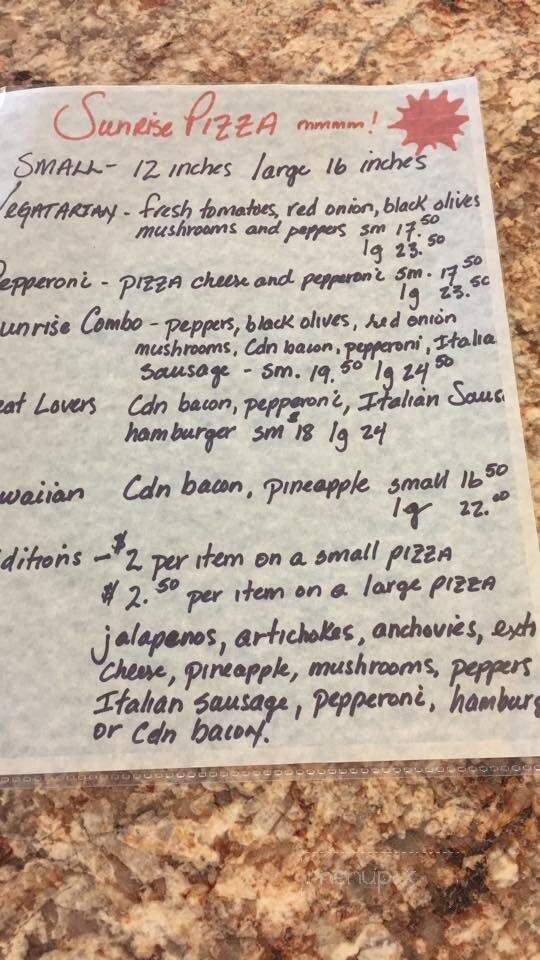 Sunrise PIZZA mmmm!
SMALL - 12 inches large 16 inches
VEGATARIAN - fresh tomatoes, red onion, black olives
mushrooms and peppers sm 17.50
lg 23.50
epperoni - PIZZA cheese and pepperoni sm. 17.50
lg 23.50
unrise Combo - peppers, black olives, red onion
mushrooms, Cdn bacon, pepperoni, Italia
Sausage - sm. 19.50 lg 24.50
eat Lovers Cdn bacon, pepperoni, Italian Saus
hamburger sm $18 lg 24
waiian Cdn bacon, pineapple small 16.50
lg 22.00
ditions - $2 per item on a small PIZZA
$2.50 per item on a large PIZZA
jalapenos, artichokes, anchovies, extr
Cheese, pineapple, mushrooms, peppers
Italian Sausage, pepperoni, hamburg
or Cdn bacon.
menupix